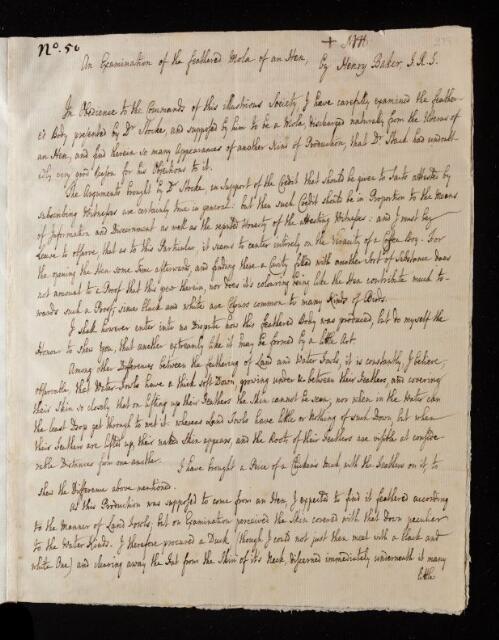 No. 56
An Examination of the Feathered Mola of an Hen, By Henry Baker, F.R.S.
In Obedience to the Commands of this illustrious Society, I have carefully examined the Feather-
ed Body presented by Dr Stocke, and supposed by him to be a Mola, discharged naturally from the Uterus of
an Hen, and find therein so many Appearances of another Kind of Production, that Dr had undoubt-
edly very good Reason for his Objections to it.
The Arguments brought by Dr Stocke in support of the Credit that should be given to Facts attested by
subscribing Witnesses are certainly true in general: but then such Credit should be in Proportion to the Means
of Information and Discernment as well as the reputed Honesty of the attesting Witnesses: and I must beg
Leave to observe, that as to this Particular, it seems to center entirely on the Veracity of a Boy. For
the opening the Hen some time afterwards, and finding there a Cavity filled with another sort of Substance does
not amount to a Proof that this grew therein, nor does its colouring being like the Hen contribute much to-
wards such a Proof; since Black and white are Colours common to many Kinds of Birds.
I shall however enter into no Dispute how this Feathered Body was produced, but do myself the
Honour to shew You, that another extreamly like it may be formed by a little Art.
Among the Differences between the feathering of Land and Water Fowls, it is constantly, I believe,
observable, that Water Fowls have a thick soft Down, growing under & between their Feathers, and covering
their Skin so closely that on lifting up their Feathers the Skin cannot be seen, nor when in the Water can
the least Drop get through to wet it: whereas Land Fowls have little or nothing of such Down but when
their Feathers are lifted up, their naked Skin appears, and the Roots of their Feathers are visible at conside-
rable Distances from one another. I have brought a Piece of a Chickens Neck with the Feathers on it, to
shew the Difference above mentioned.
As this Production was supposed to come from an Hen, I expected to find it feathered according
to the Manner of Land Fowls, but on Examination perceived the Skin covered with that Down peculiar
to the Water Kinds. I therefore procured a Duck (though I could not just then meet with a black and
white One) and clearing away the Fat from the Skin of its Neck, discerned immediately underneath it many
little